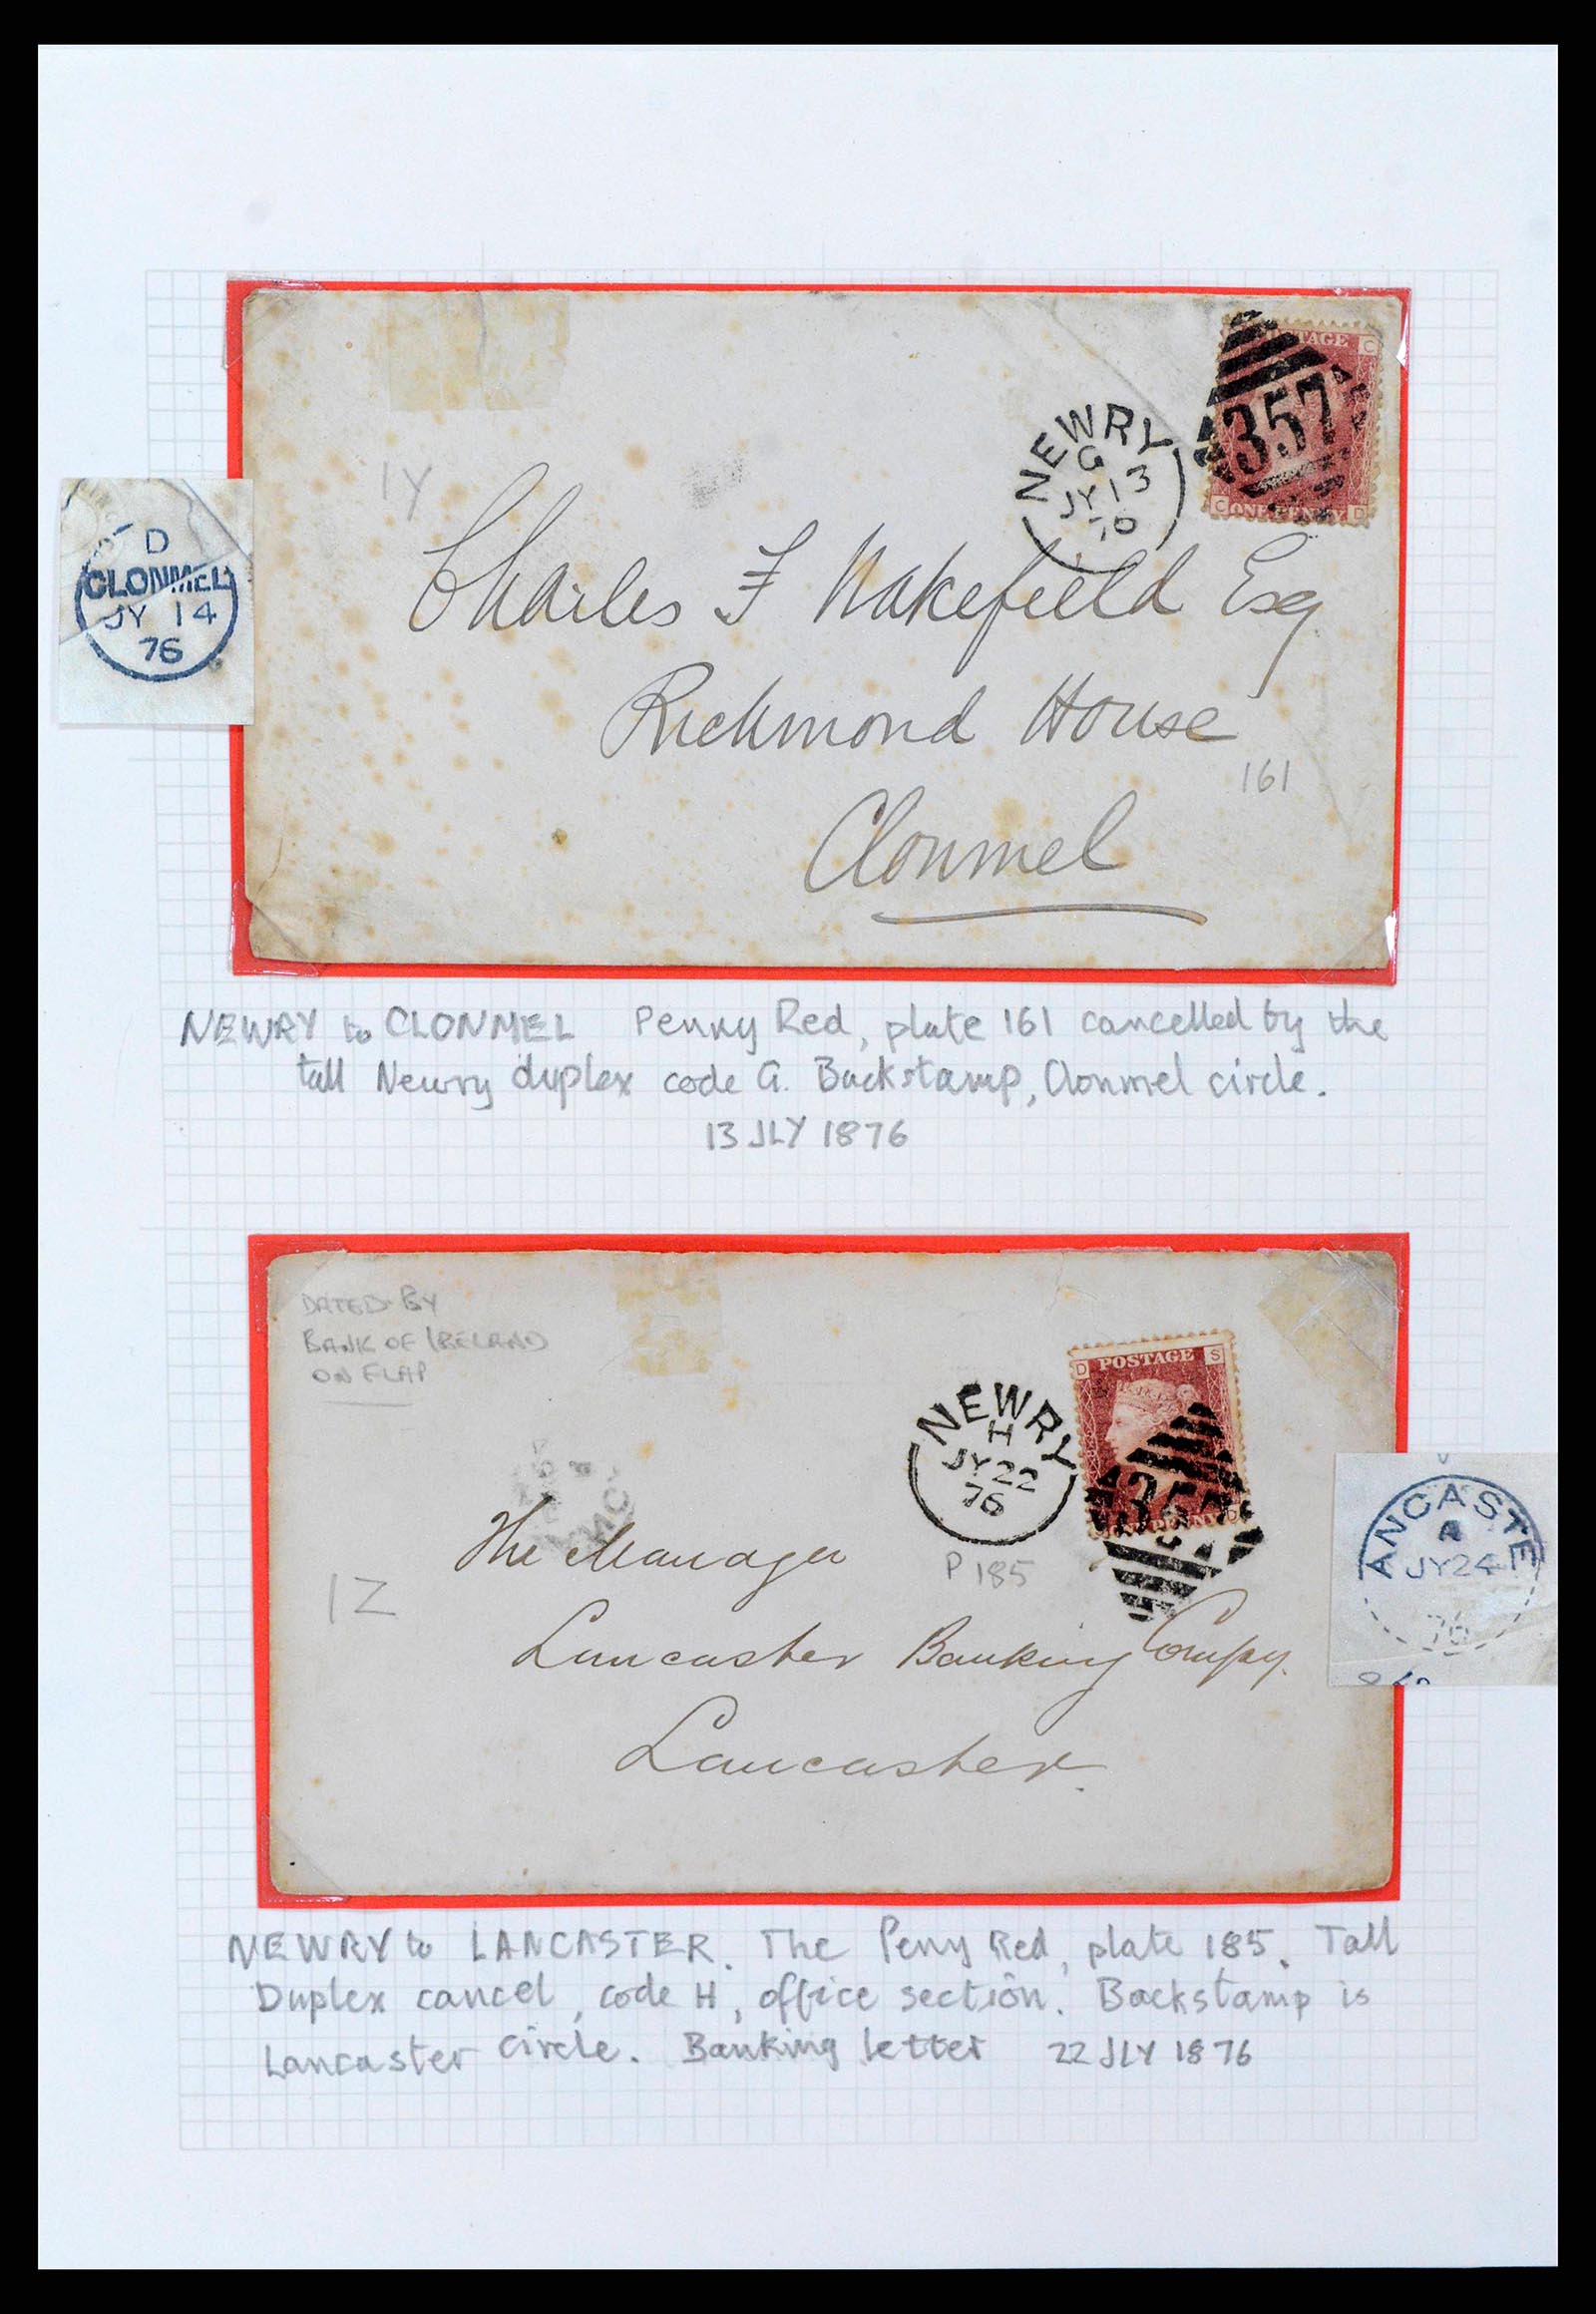 TAGE C
357
C ONE PENNY D
NEWRY
G
JY 13
76
1Y
D
CLONMEL
JY 14
76
Charles F Wakefield Esq
Richmond House
161
Clonmel
NEWRY to CLONMEL Penny Red, plate 161 cancelled by the
tall Newry duplex code G. Backstamp, Clonmel circle.
13 JLY 1876
DATED BY
BANK OF IRELAND
ON FLAP
D POSTAGE S
NEWRY
H
JY 22
76
357
P 185
ANCASTE
A
JY 24
76
The Manager
1Z
Lancaster Banking Compy.
Lancaster.
NEWRY to LANCASTER. The Peny Red, plate 185. Tall
Duplex cancel, code H, office section. Backstamp is
Lancaster circle. Banking letter 22 JLY 1876